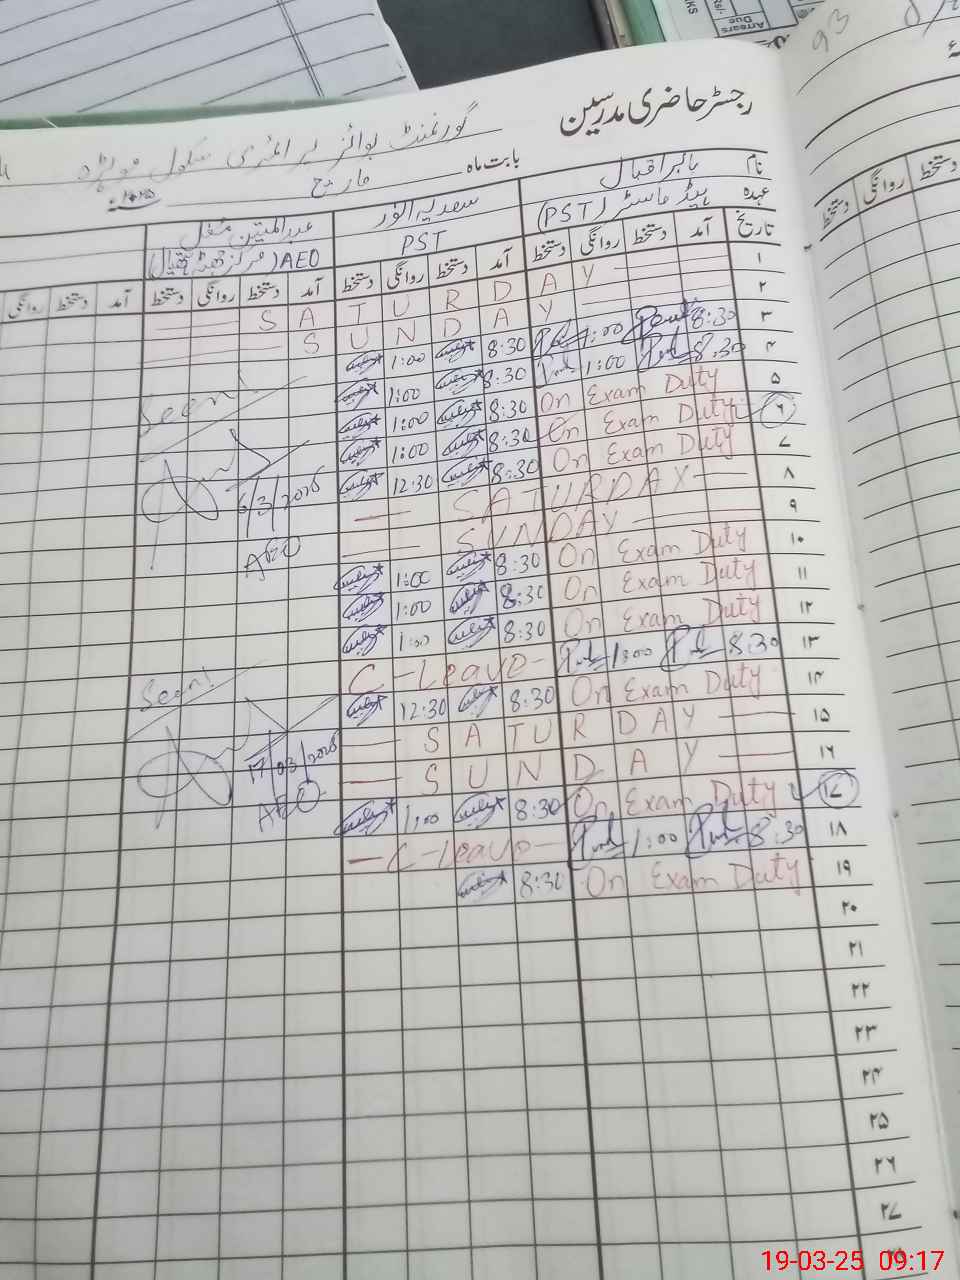 Arrears
Due
93
رجسٹر حاضری مدرسین
گورنمنٹ بوائز پرائمری سکول موہڑہ
بابت ماہ مارچ ۲۰۲۵
نام بابر اقبال سعدیہ انور عبدالمتین مغل
عہدہ ہیڈ ماسٹر (PST) PST AEO (مرکز
تاریخ آمد دستخط روانگی دستخط آمد دستخط روانگی دستخط آمد دستخط روانگی دستخط آمد دستخط روانگی
دستخط روانگی دستخط
۱ SATURDAY
۲ SUNDAY
۳ 8:30 1:00 8:30 1:00
۴ 8:30 1:00 8:30 1:00
۵ On Exam Duty 8:30 1:00
۶ On Exam Duty 8:30 1:00
۷ On Exam Duty 8:30 12:30
۸ SATURDAY
۹ SUNDAY
۱۰ On Exam Duty 8:30 1:00
۱۱ On Exam Duty 8:30 1:00
۱۲ On Exam Duty 8:30 1:00
۱۳ 8:30 1:00 C-Leave
۱۴ On Exam Duty 8:30 12:30
۱۵ SATURDAY
۱۶ SUNDAY
۱۷ On Exam Duty 8:30 1:00
۱۸ 8:30 1:00 C-Leave
۱۹ On Exam Duty 8:30
۲۰
۲۱
۲۲
۲۳
۲۴
۲۵
۲۶
۲۷
Seen
6/3/2025
AEO
Seen
17/03/2025
AEO
19-03-25 09:17